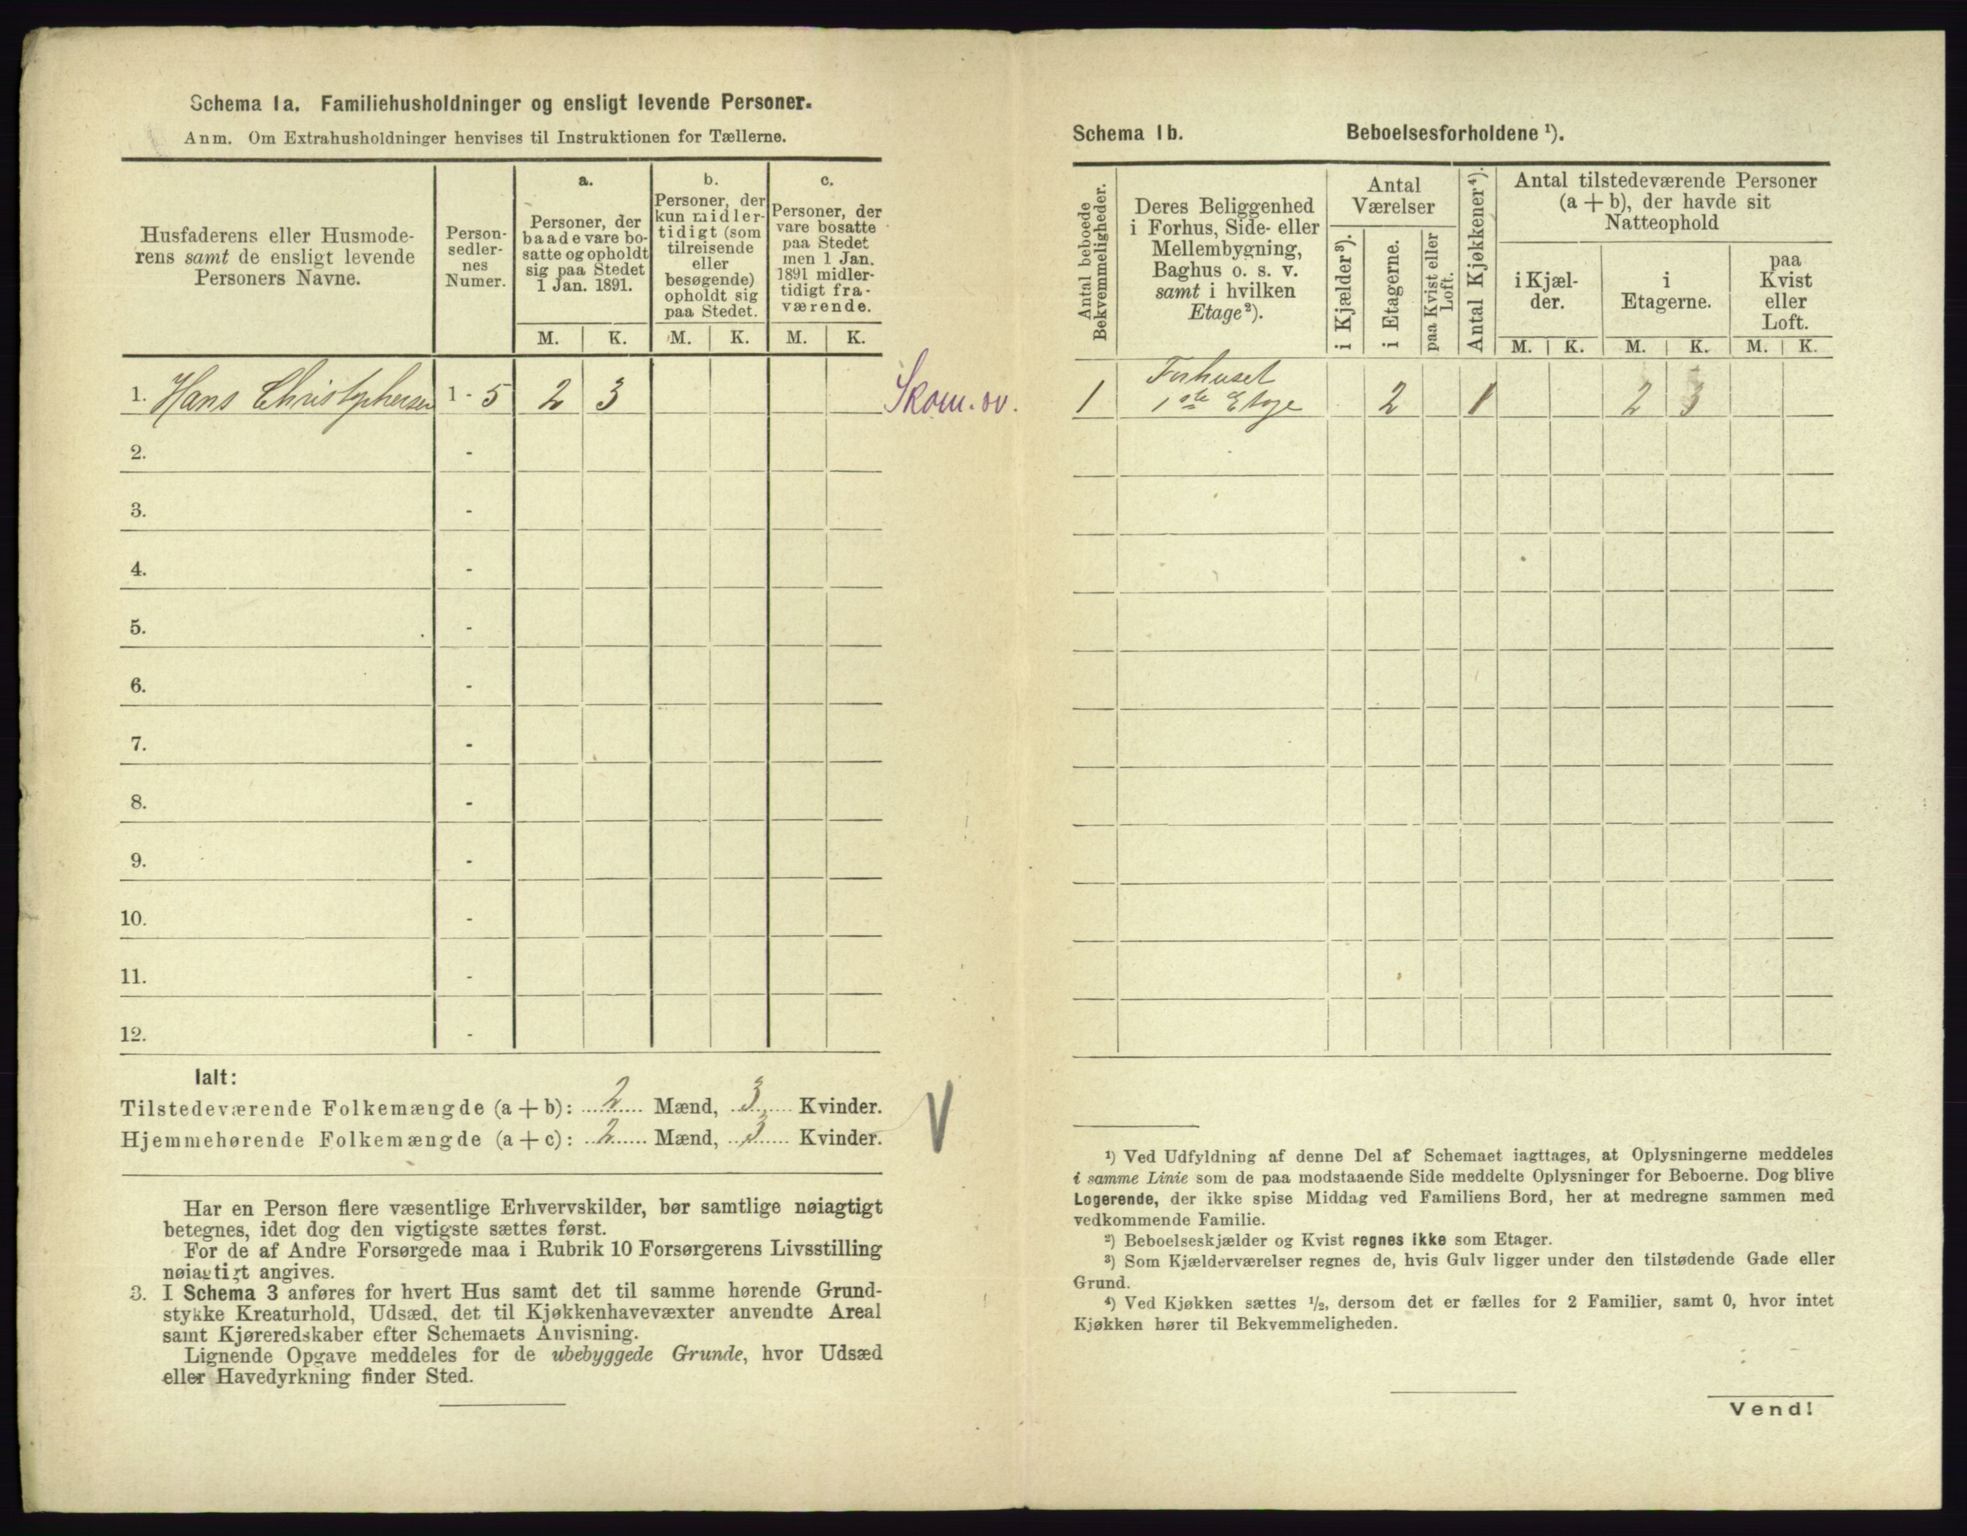 Schema 1a. Familiehusholdninger og ensligt levende Personer.
Anm. Om Extrahusholdninger henvises til Instruktionen for Tællerne.
Husfaderens eller Husmode-
rens samt de ensligt levende
Personers Navne.
Person-
sedler-
nes
Numer.
a.
Personer, der
baade vare bo-
satte og opholdt
sig paa Stedet
1 Jan. 1891.
b.
Personer, der
kun midler-
tidigt (som
tilreisende
eller
besøgende)
opholdt sig
paa Stedet.
c.
Personer, der
vare bosatte
paa Stedet
men 1 Jan.
1891 midler-
tidigt fra-
værende.
M. K. M. K. M. K.
1. Hans Christophersen 1 - 5 2 3 Skom. sv.
2. -
3. -
4. -
5. -
6. -
7. -
8. -
9. -
10. -
11. -
12. -
Ialt:
Tilstedeværende Folkemængde (a + b): 2 Mænd, 3 Kvinder.
Hjemmehørende Folkemængde (a + c): 2 Mænd, 3 Kvinder.
Har en Person flere væsentlige Erhvervskilder, bør samtlige nøiagtigt
betegnes, idet dog den vigtigste sættes først.
For de af Andre Forsørgede maa i Rubrik 10 Forsørgerens Livsstilling
nøiagtigt angives.
3. I Schema 3 anføres for hvert Hus samt det til samme hørende Grund-
stykke Kreaturhold, Udsæd, det til Kjøkkenhavevæxter anvendte Areal
samt Kjøreredskaber efter Schemaets Anvisning.
Lignende Opgave meddeles for de ubebyggede Grunde, hvor Udsæd
eller Havedyrkning finder Sted.
Schema 1b. Beboelsesforholdene ¹).
Antal beboede
Bekvemmeligheder.
Deres Beliggenhed
i Forhus, Side- eller
Mellembygning,
Baghus o. s. v.
samt i hvilken
Etage²).
Antal
Værelser
i Kjælder³).
i Etagerne.
paa Kvist eller
Loft.
Antal Kjøkkener⁴).
Antal tilstedeværende Personer
(a + b), der havde sit
Natteophold
i Kjæl-
der.
i
Etagerne.
paa
Kvist
eller
Loft.
M. K. M. K. M. K.
1 Forhuset
1ste Etage 2 1 2 3
¹) Ved Udfyldning af denne Del af Schemaet iagttages, at Oplysningerne meddeles
i samme Linie som de paa modstaaende Side meddelte Oplysninger for Beboerne. Dog blive
Logerende, der ikke spise Middag ved Familiens Bord, her at medregne sammen med
vedkommende Familie.
²) Beboelseskjælder og Kvist regnes ikke som Etager.
³) Som Kjælderværelser regnes de, hvis Gulv ligger under den tilstødende Gade eller
Grund.
⁴) Ved Kjøkken sættes ½, dersom det er fælles for 2 Familier, samt 0, hvor intet
Kjøkken hører til Bekvemmeligheden.
Vend!